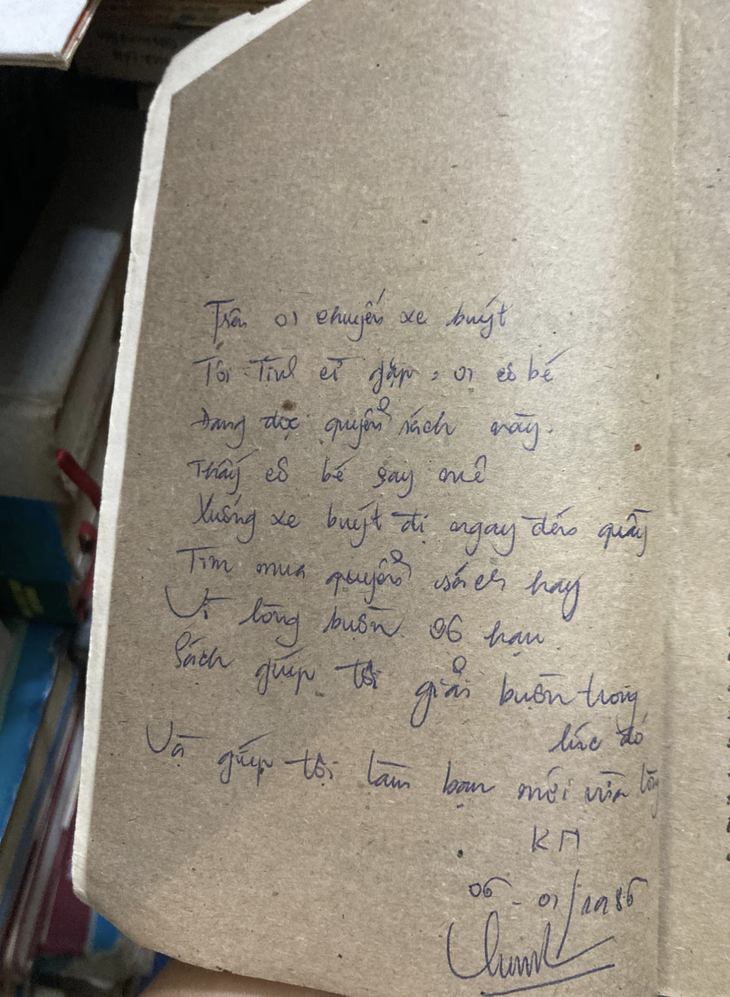 Trên 01 chuyến xe buýt
Tôi Tình cờ gặp 01 cô bé
Đang đọc quyển sách này.
Thấy cô bé say mê
Xuống xe buýt đi ngay đến quầy
Tìm mua quyển sách hay
Vì lòng buồn vô hạn
Sách giúp tôi giải buồn trong
lúc đó
Và giúp tôi làm bạn mới vừa lòng
KM
06 - 01/1986